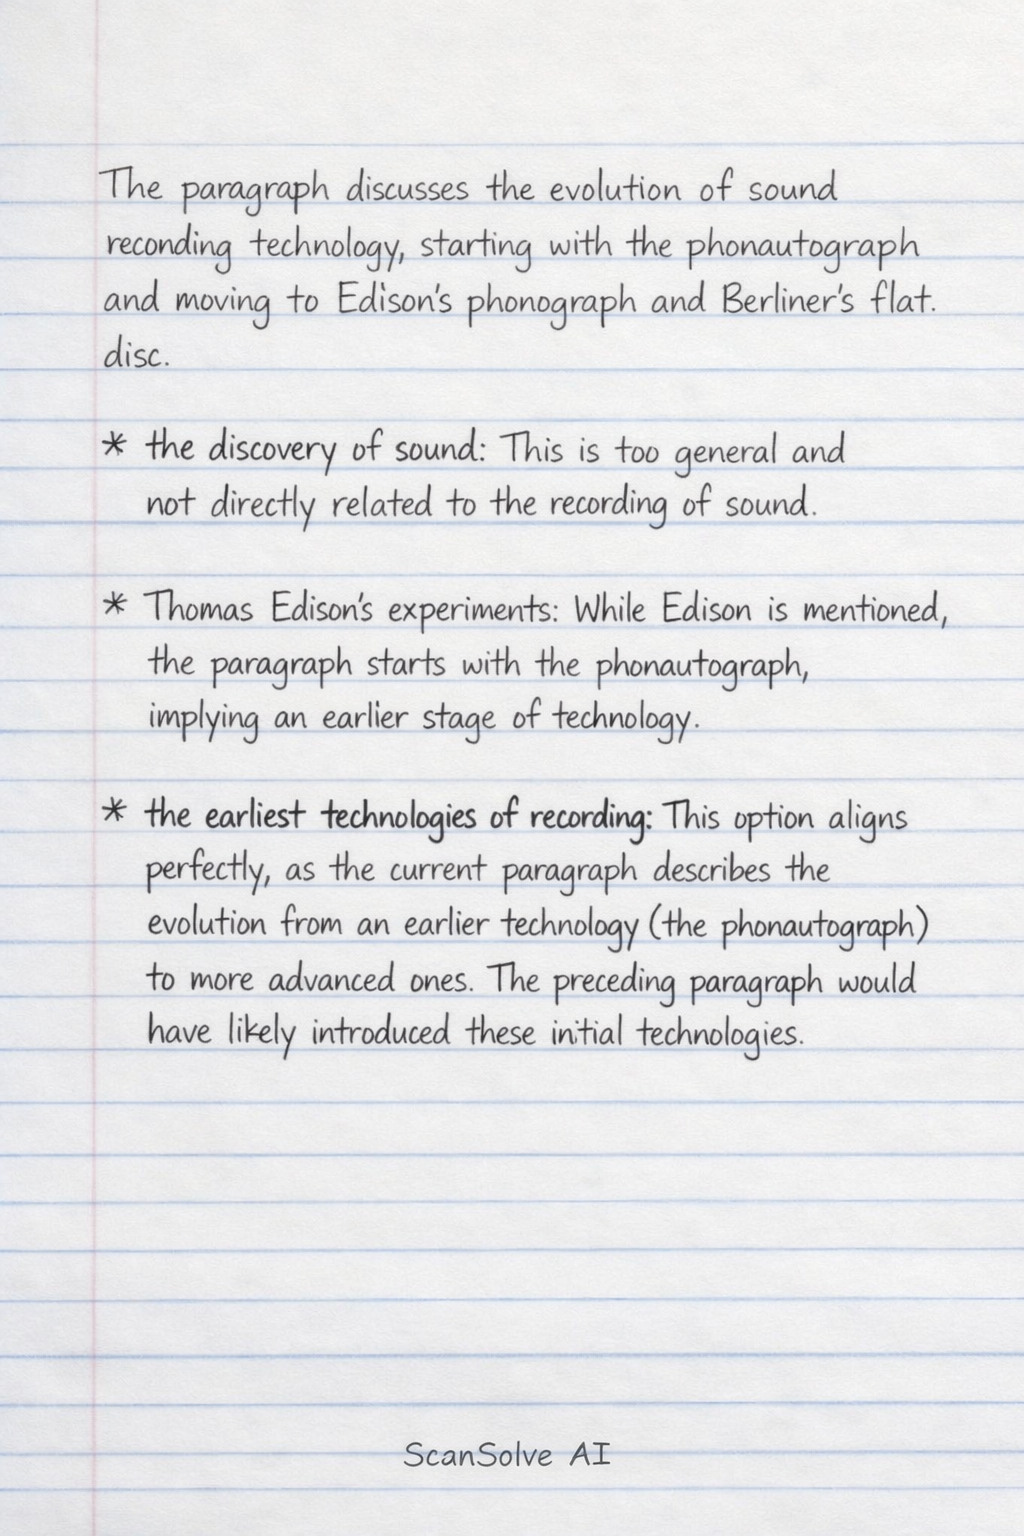 The paragraph discusses the evolution of sound
reconding technology, starting with the phonautograph
and moving to Edison's phonograph and Berliner's flat.
disc.
* the discovery of sound: This is too general and
not directly related to the recording of sound.
* Thomas Edison's experiments: While Edison is mentioned,
the paragraph starts with the phonautograph,
implying an earlier stage of technology.
* the earliest technologies of recording: This option aligns
perfectly, as the current paragraph describes the
evolution from an earlier technology (the phonautograph)
to more advanced ones. The preceding paragraph would
have likely introduced these initial technologies.
ScanSolve AI